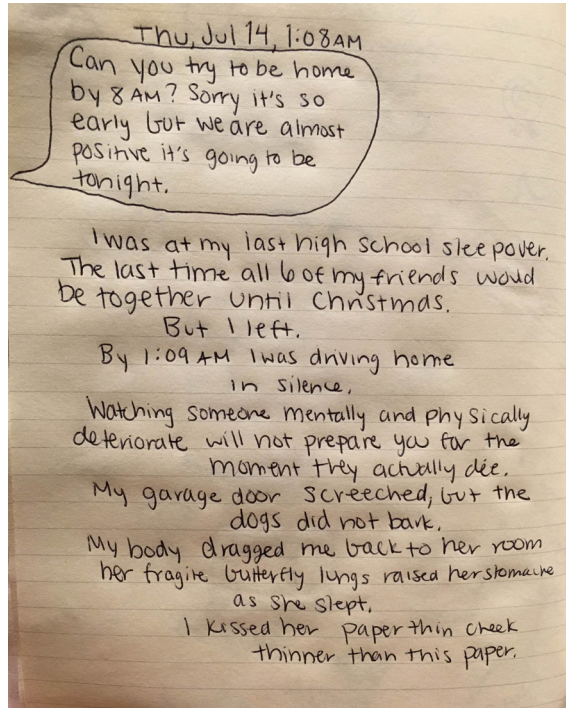 Thu, Jul 14, 1:08AM
Can you try to be home
by 8 AM? Sorry it's so
early but we are almost
positive it's going to be
tonight.
I was at my last high school sleepover.
The last time all 6 of my friends would
be together until Christmas.
But I left.
By 1:09 AM I was driving home
in silence.
Watching someone mentally and physically
deteriorate will not prepare you for the
moment they actually die.
My garage door screeched, but the
dogs did not bark.
My body dragged me back to her room
her fragile butterfly lungs raised her stomache
as she slept.
I kissed her paper thin cheek
thinner than this paper.